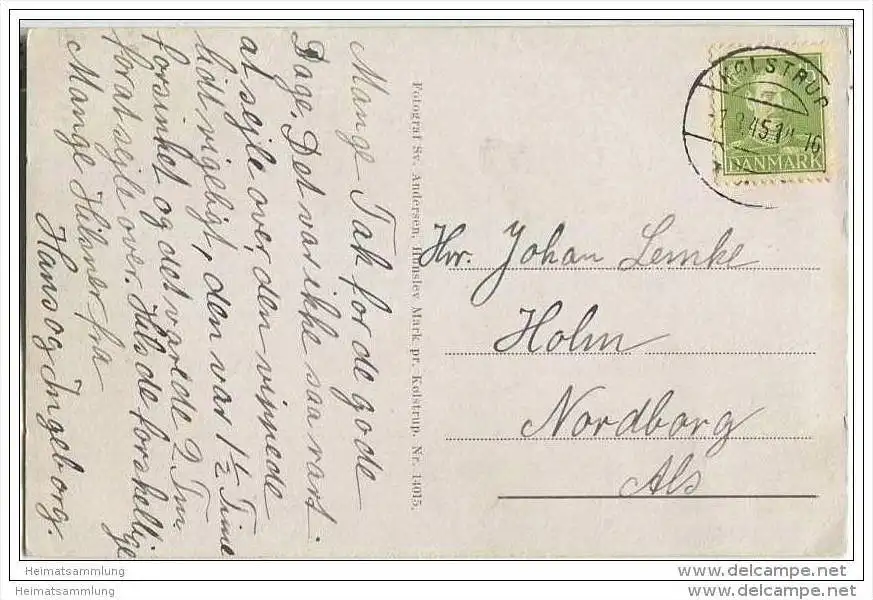 Mange Tak for de gode
Dage. Det var ikke saa rart.
at sejle over, den vippede
lidt rigeligt, den var 1½ Time
forsinket og det varede 2 Tm.
forat sejle over. Hils de forskellige
Mange Hilsner fra
Hans og Ingeborg.
Fotograf Sv. Andersen, Hunslev Mark pr. Kølstrup. Nr. 14015.
KØLSTRUP
45
16
DANMARK
Hr. Johan Lemke
Holm
Nordborg
Als
Heimatsammlung
Heimatsammlung
www.delcampe.net
www.delcampe.net